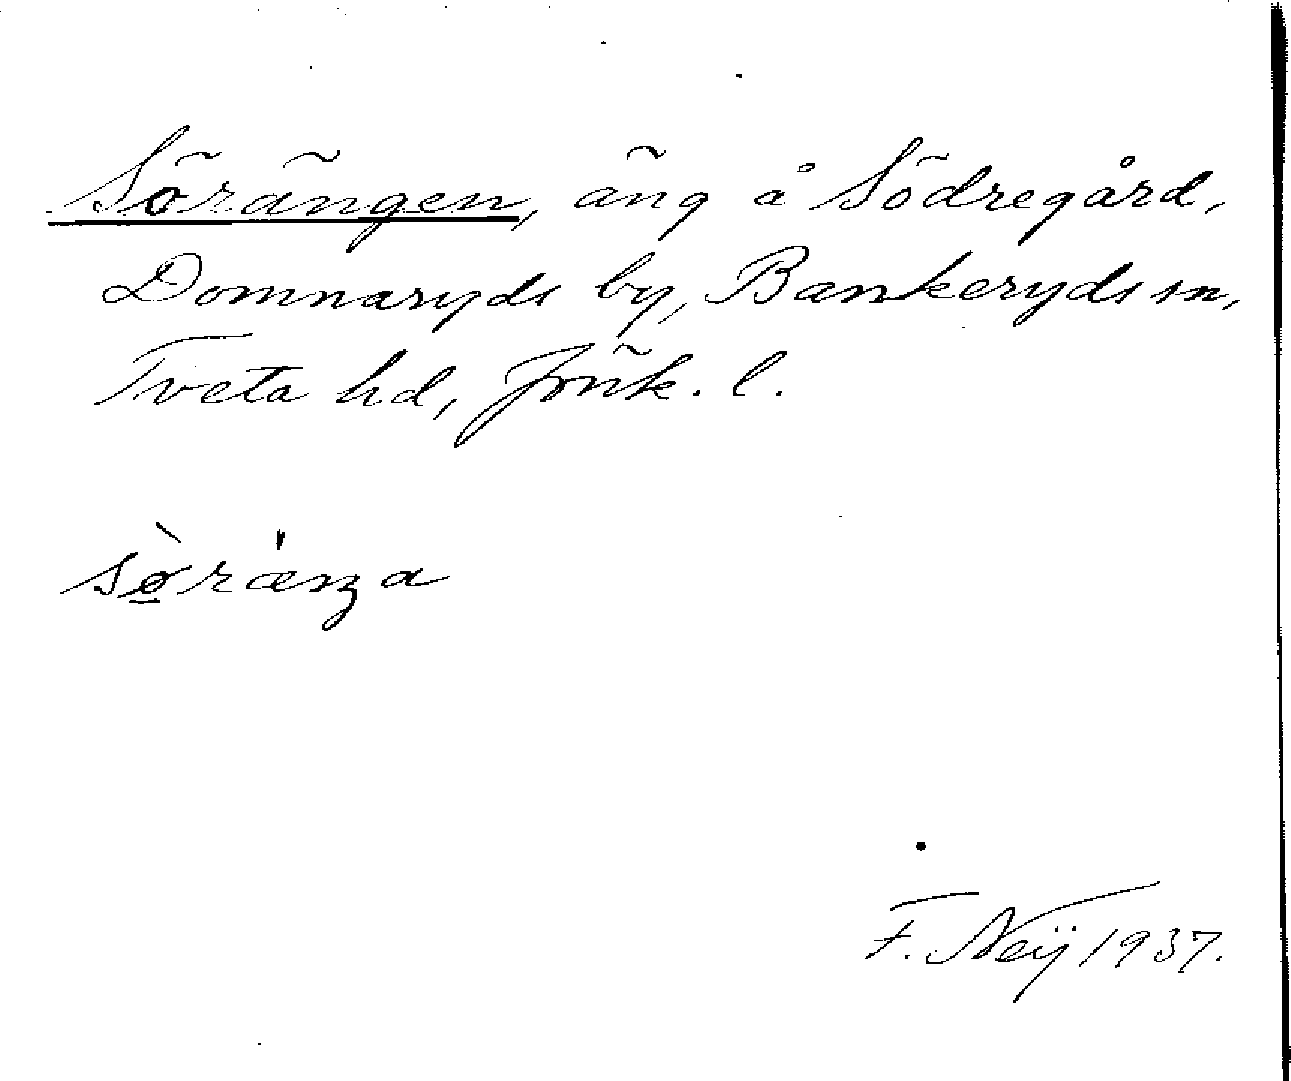 Sörängen, äng å Södregård,
Domnaryds by, Bankeryds sn,
Tveta hd, Jönk. l.
sø̀ræŋa
F. Neÿ 1937.